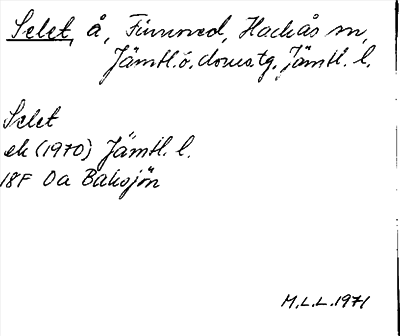 Selet, å, Finnved, Hackås sn,
Jämtl. ö. domstg, Jämtl. l.
Selet
ek (1970) Jämtl. l.
18F 0a Baksjön
M.L.L. 1971